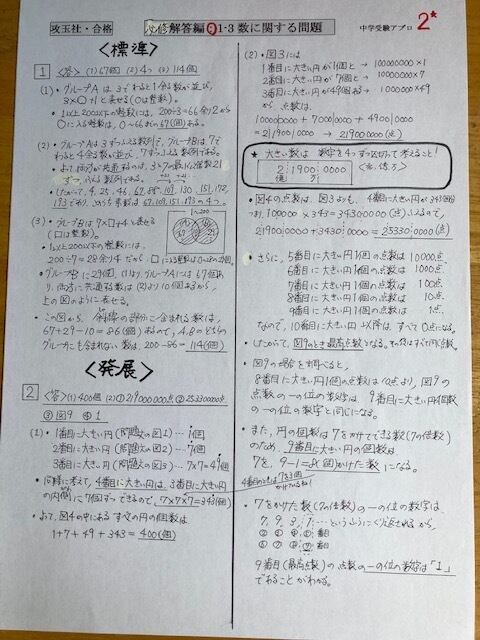 攻玉社・合格
必修解答編①1-3 数に関する問題
中学受験アプロ
2*
<標準>
1 <答> (1) 67個 (2) 4つ (3) 114個
(1)・グループAは3でわると1余る数が並び、
3×○+1と表せる(○は整数)。
・1以上200以下の整数には、200÷3=66余り2から
○に入る整数は、0〜66の67(個)ある。
(2)・グループAは3ずつふえる数列で、グループBは7で
わると4余る数が並び、7ずつふえる数列である。
・より、両方に共通するのは、3と7の最小公倍数21
ずつふえる数列である。
・したがって、4、25、46、67、88、109、130、151、172、
193であり、
(3)・グループBは7×□+4と表せる
(□は整数)。
1〜200
・1以上200以下の整数には、
200÷7=28余り4だから
・グループBに29個、(1)より、グループAには67個あ
り、両方に共通する数は(2)より10個あるから、
上の図のように表せる。
・この図から、斜線の部分に含まれる数は、
67+29-10=86(個)あるので、A、Bのどちらの
グループにも含まれない数は、200-86=114(個)
<発展>
2 <答> (1) 400個 (2)① 219000000点 ② 253300000点
③ 図9 ④ 1
(1)・1番目に大きい円(問題文の図1)…1個
2番目に大きい円(問題文の図2)…7個
3番目に大きい円(問題文の図3)…7×7=49個
・同様に考えて、4番目に大きい円は、3番目に大きい円
の内側に7個ずつできるので、7×7×7=343(個)
・よって、図4の中にあるすべての円の個数は
1+7+49+343=400(個)
(2)・図3には
1番目に大きい円が1個と→100000000×1
2番目に大きい円が7個と→10000000×7
3番目に大きい円が49個ある→1000000×49
から、点数は、
100000000+70000000+49000000
=219000000→219000000(点)
★大きい数は 数字を4つずつ区切って考えること!
2|1900|0000
億 万
・図4の点数は、図3よりも、4番目に大きい円が343個分
つまり、100000×343=34300000(点)ふえるので、
219000000+34300000=253300000(点)
・さらに、5番目に大きい円1個の点数は 10000点
6番目に大きい円1個の点数は 1000点
7番目に大きい円1個の点数は 100点
8番目に大きい円1個の点数は 10点
9番目に大きい円1個の点数は 1点
なので、10番目に大きい円以降は、すべて0点になる。
・したがって、図9のとき最高点数となる。
・図9の場合を調べると、
8番目に大きい円1個の点数は10点より、図9の
点数の一の位の数字は、9番目に大きい円の個数
の一の位の数字と同じになる。
・また、円の個数は7をかけてできる数(7の倍数)
のため、9番目に大きい円の個数は
7を、9-1=8(個)かけた数になる。
・7をかけた数(7の倍数)の一の位の数字は、
7、9、3、1、7…というふうにくり返されるから、
9番目(最高点数)の点数の一の位の数字は「1」
であることがわかる。